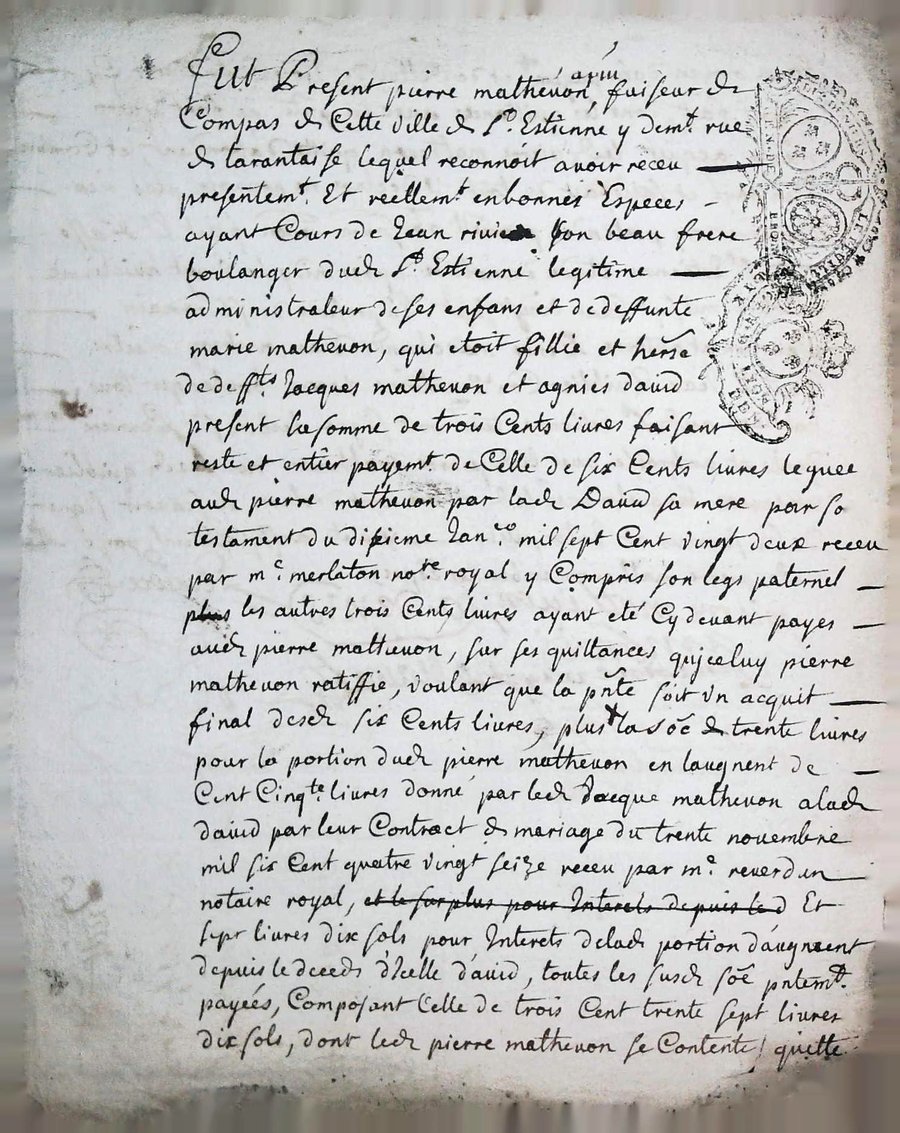 Fut Present pierre mathevon, faiseur de
Compas de Cette ville de St. Estienne y demt. rue
de tarantaise lequel reconnoit avoir receu
presentemt. Et reellemt en bonnes Especes
ayant Cours de Jean rivier son beau frere
boulanger dud. St. Estienne legitime
administrateur de ses enfans et de deffunte
marie mathevon, qui etoit fillie et herë
de deffts Jacques mathevon et agnies david
present la somme de trois Cents livres faisant
reste et entier payemt. de Celle de six Cents livres leguée
aud. pierre mathevon par lad. David sa mere par so
testament du dixieme Janro. mil sept Cent vingt deux receu
par me. merlaton notre. royal y Compris son legs paternel
plus les autres trois Cents livres ayant eté Cy devant payes
aud. pierre mathevon, sur ses quittances qu'jceluy pierre
mathevon ratiffie, voulant que la pñte soit un acquit
final desd. six Cents livres, plus la sõe de trente livres
pour la portion dud. pierre mathevon en laugment de
Cent Cinqte. livres donné par led. Jacque mathevon a lad.
david par leur Contract de mariage du trente novembre
mil six Cent quatre vingt seize receu par me. reverdun
notaire royal, et le surplus pour Interets depuis le d Et
sept livres dix sols pour Interets delad. portion d'augment
depuis le deceds d'Icelle david, toutes les susd. sõe pntemt.
payées, Composant Celle de trois Cent trente sept livres
dix sols, dont led. pierre mathevon se Contente, quitte